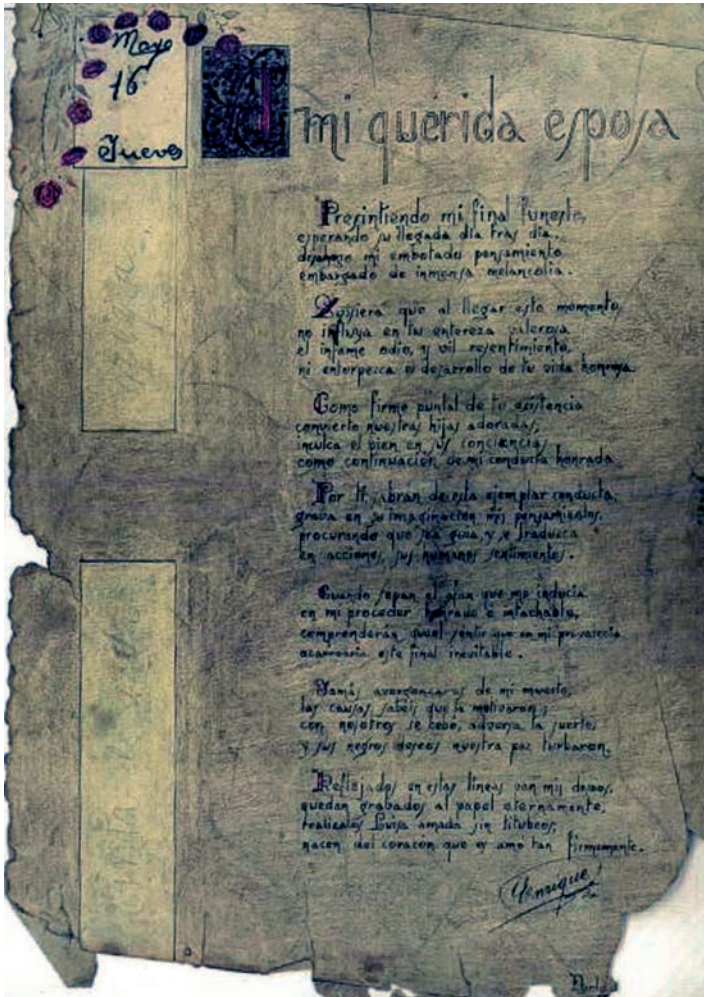 Mayo
16
Jueves
A mi querida esposa
Presintiendo mi final funesto,
esperando su llegada dia tras dia,
mi embotado pensamiento
embargado de inmensa melancolia.
que al llegar este momento,
no influya en tu entereza valerosa
el infame odio, y vil resentimiento,
ni entorpezca el desarrollo de tu vida honrosa.
Como firme puntal de tu existencia
convierte nuestras hijas adoradas,
inculca el bien en sus conciencias
como continuación de mi conducta honrada.
Por ti sabran de esta ejemplar conducta,
grava en su imaginación mis pensamientos,
procurando que sea guia, y se traduzca
en acciones, sus humanos sentimientos.
Cuando sepan el afan que me inducia
en mi proceder honrado e intachable,
comprenderán que el sentir que en mi prevalecia
acarrearia este final inevitable.
Jamás avergonzaros de mi muerte,
las causas sabéis que la motivaron;
con nosotros se cebó, adversa la suerte,
y sus negros deseos nuestra paz turbaron.
Reflejados en estas lineas van mis deseos,
quedan grabados al papel eternamente,
realizalos Luisa amada sin titubeos,
nacen del corazón que os amó tan firmemente.
Enrique